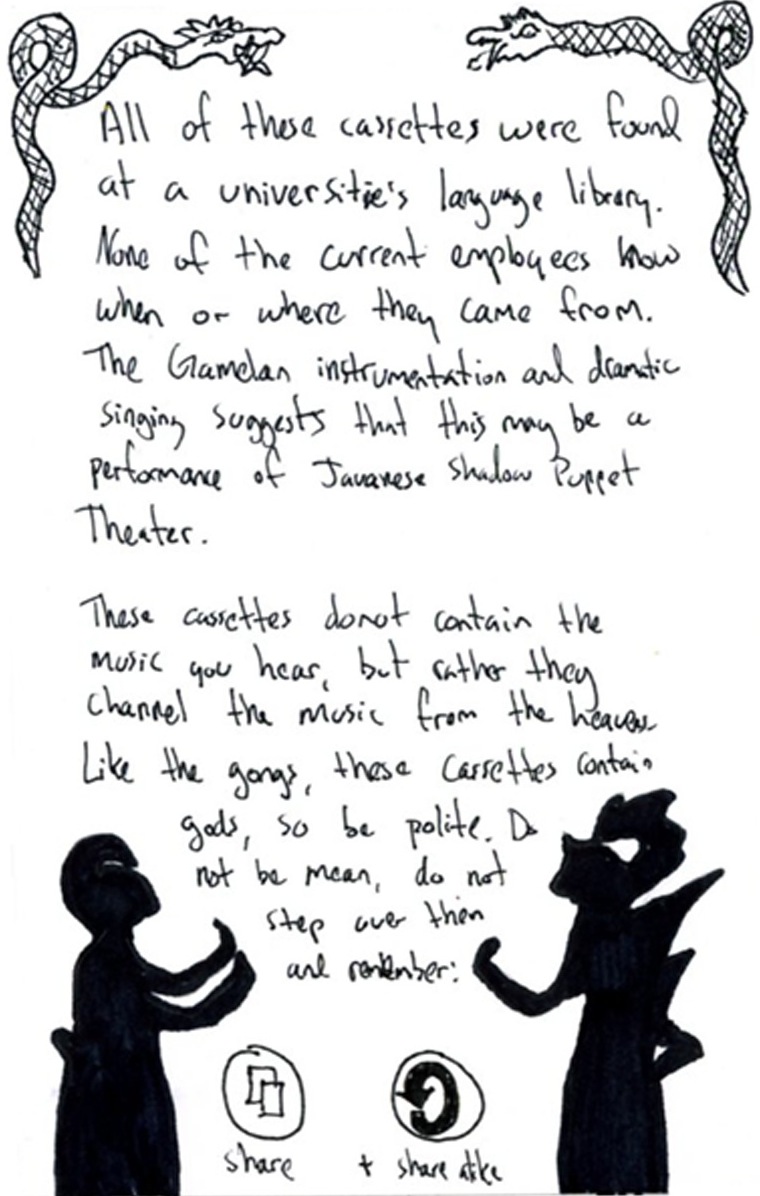 All of these cassettes were found
at a universitie's language library.
None of the current employees know
when or where they came from.
The Gamelan instrumentation and dramatic
singing suggests that this may be a
performance of Javanese Shadow Puppet
Theater.
These cassettes do not contain the
music you hear, but rather they
channel the music from the heavens
Like the gongs, these cassettes contain
gods, so be polite. Do
not be mean, do not
step over them
and remember:
share + share alike